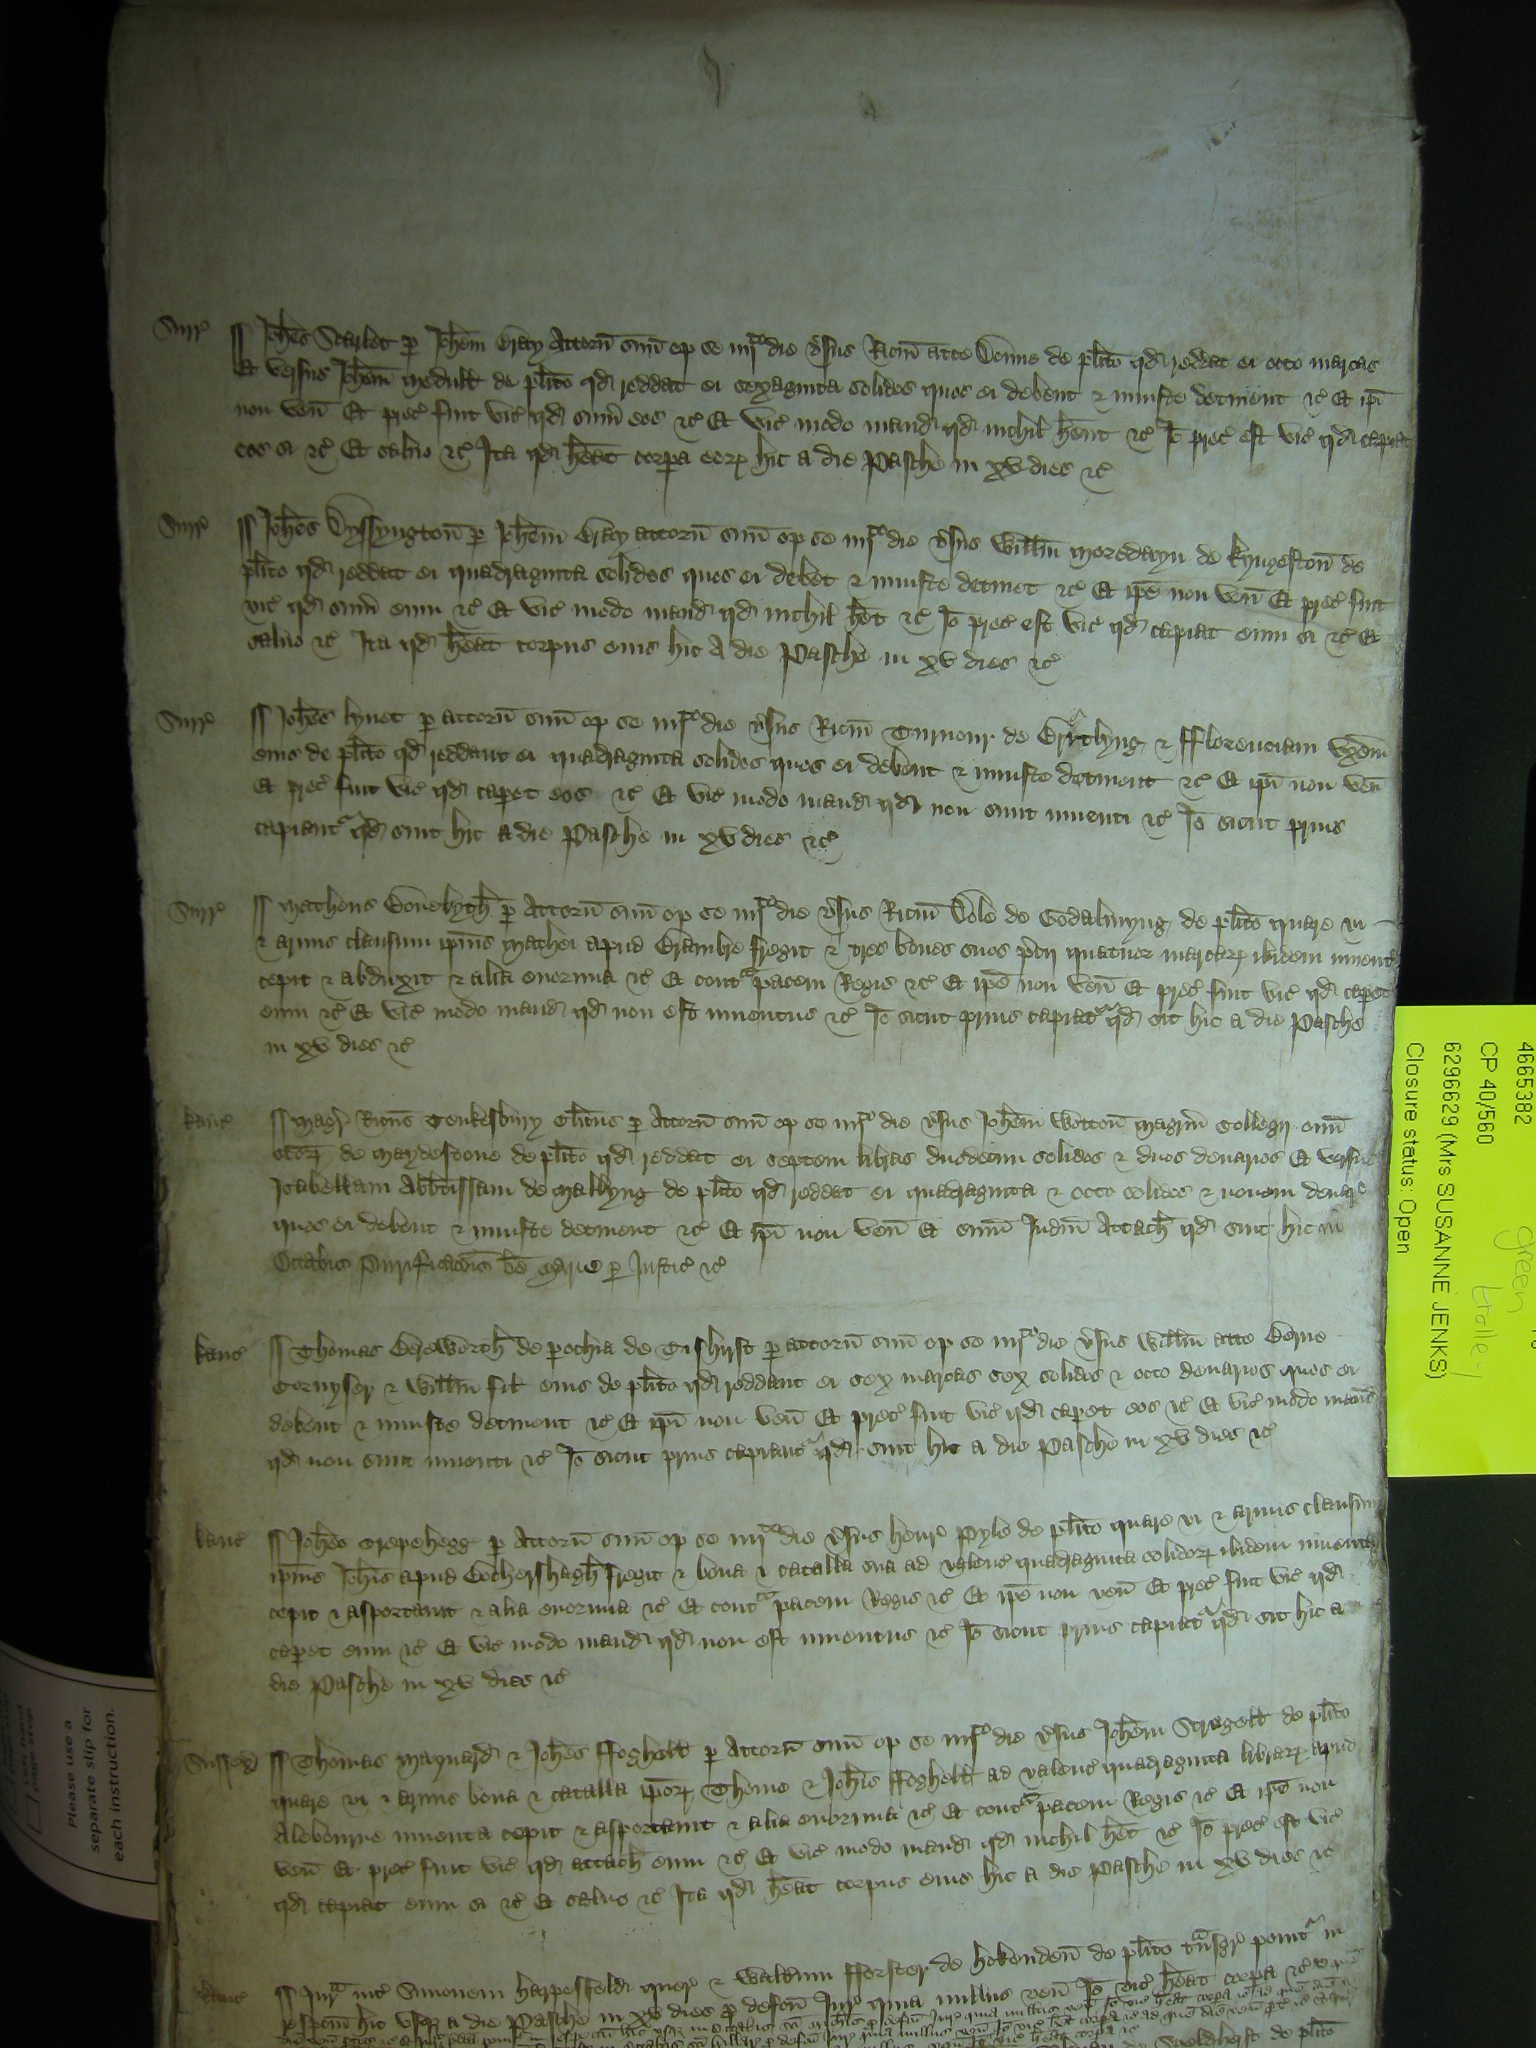 Surr' Joh'es Scarlet p' Joh'em Gray Attorn' suu' op' se iiijto die v'sus Ric'm atte Donne de pl'ito q'd reddat ei octo marcas
Et versus Joh'em de pl'ito q'd reddat ei sexaginta solidos quos ei debent & iniuste detinent &c' Et ip'i
non ven' Et prec' fuit vic' q'd sum' eos &c' Et vic' modo mand' q'd nichil h'ent &c' Io' prec' est vic' q'd capiat
eos si &c' Et saluo &c' Ita q'd h'eat corp'a eor' hic a die Pasche in xv dies &c'
Surr' Joh'es Dyssyngton' p' Joh'em Gray attorn' suu' op' se iiijto die v'sus Will'm de Kyngeston' de
pl'ito q'd reddat ei quadraginta solidos quos ei debet & iniuste detinet &c' Et ip'e non ven' Et prec' fuit
vic' q'd sum' eum &c' Et vic' modo mand' q'd nichil h'et &c' Io' prec' est vic' q'd capiat eum si &c' Et
saluo &c' Ita q'd h'eat corpus eius hic a die Pasche in xv dies &c'
Surr' Joh'es lynot p' attorn' suu' op' se iiijto die v'sus Ric'm Turnour de & fflorenciam vx'em
eius de pl'ito q'd reddant ei quadraginta solidos quos ei debent & iniuste detinent &c' Et ip'i non ven'
Et prec' fuit vic' q'd cap'et eos &c' Et vic' modo mand' q'd non sunt inuenti &c' Io' sicut prius
capiant' q'd sint hic a die Pasche in xv dies &c'
Surr' Matheus p' Attorn' suu' op' se iiijto die v'sus Ric'm Cole de Godalmyng de pl'ito quare vi
& armis clausum ip'ius Mathei apud Bramlee fregit & tres boues suos p'cij quatuor marcar' ibidem inuent'
cepit & abduxit & alia enormia &c' Et cont' pacem Regis &c' Et ip'e non ven' Et prec' fuit vic' q'd cap'et
eum &c' Et vic' modo mand' q'd non est inuentus &c' Io' sicut prius capiat' q'd sit hic a die Pasche
in xv dies &c'
Kanc' Mag'r Ric'us Teukesbury cl'icus p' Attorn' suu' op' se iiijto die v'sus Joh'em Wotton' magr'm Collegij om'i
s'cor' de Maydestone de pl'ito q'd reddat ei septem libras duodecim solidos & duos denarios Et versus
Isabellam Abb'issam de Mallyng de pl'ito q'd reddat ei quadraginta & octo solidos & nouem denar'
quos ei debent & iniuste detinent &c' Et ip'i non ven' Et sum' Iud'm Attach' q'd sint hic in
Octabis Purificac'onis b'e Marie p' Justic' &c'
Kanc' Thomas Bereworth' de p'ochia de Tishyrst p' attorn' suu' op' se iiijto die v'sus Will'm atte Borne
& Will'm fil' eius de pl'ito q'd reddant ei sex marcas sex solidos & octo denarios quos ei
debent & iniuste detinent &c' Et ip'i non ven' Et prec' fuit vic' q'd cap'et eos &c' Et vic' modo mand'
q'd non sunt inuenti &c' Io' sicut prius capiant' q'd sint hic a die Pasche in xv dies &c'
Kanc' Joh'es Trepehegg' p' Attorn' suu' op' se iiijto die v'sus Henr' Pyle de pl'ito quare vi & armis clausum
ip'ius Joh'is apud fregit & bona & catalla sua ad valenc' quadraginta solidor' ibidem inuenta
cepit & asportauit & alia enormia &c' Et cont' pacem Regis &c' Et ip'e non ven' Et prec' fuit vic' q'd
cap'et eum &c' Et vic' modo mand' q'd non est inuentus &c' Io' sicut prius capiat' q'd sit hic a
die Pasche in xv dies &c'
Sussex' Thomas Maynard & Joh'es ffoghell p' Attorn' suu' op' se iiijto die v'sus Joh'em de pl'ito
quare vi & armis bona & catalla ip'or' Thome & Joh'is ffoghell ad valenc' quadraginta librar' apud
Alebourne inuenta cepit & asportauit & alia enormia &c' Et cont' pacem Regis &c' Et ip'e non
ven' Et prec' fuit vic' q'd attach' eum &c' Et vic' modo mand' q'd nichil h'et &c' Io' prec' est vic'
q'd capiat eum si &c' Et saluo &c' Ita q'd h'eat corpus eius hic a die Pasche in xv dies &c'
Kanc' Jur' int' Simonem Harpesfeld quer' & Walt'um fforster de Hokenden' de pl'ito t'nsgr' ponit' in
resp'cm hic vsq' a die Pasche in xv dies p' defc'u Jur' quia nullus ven' Io' vic' h'eat corp'a &c'
4665382
CP 40/560
62966629 (Mrs SUSANNE JENKS)
Closure status: Open
green
trolley
Please use a
separate slip for
each instruction.